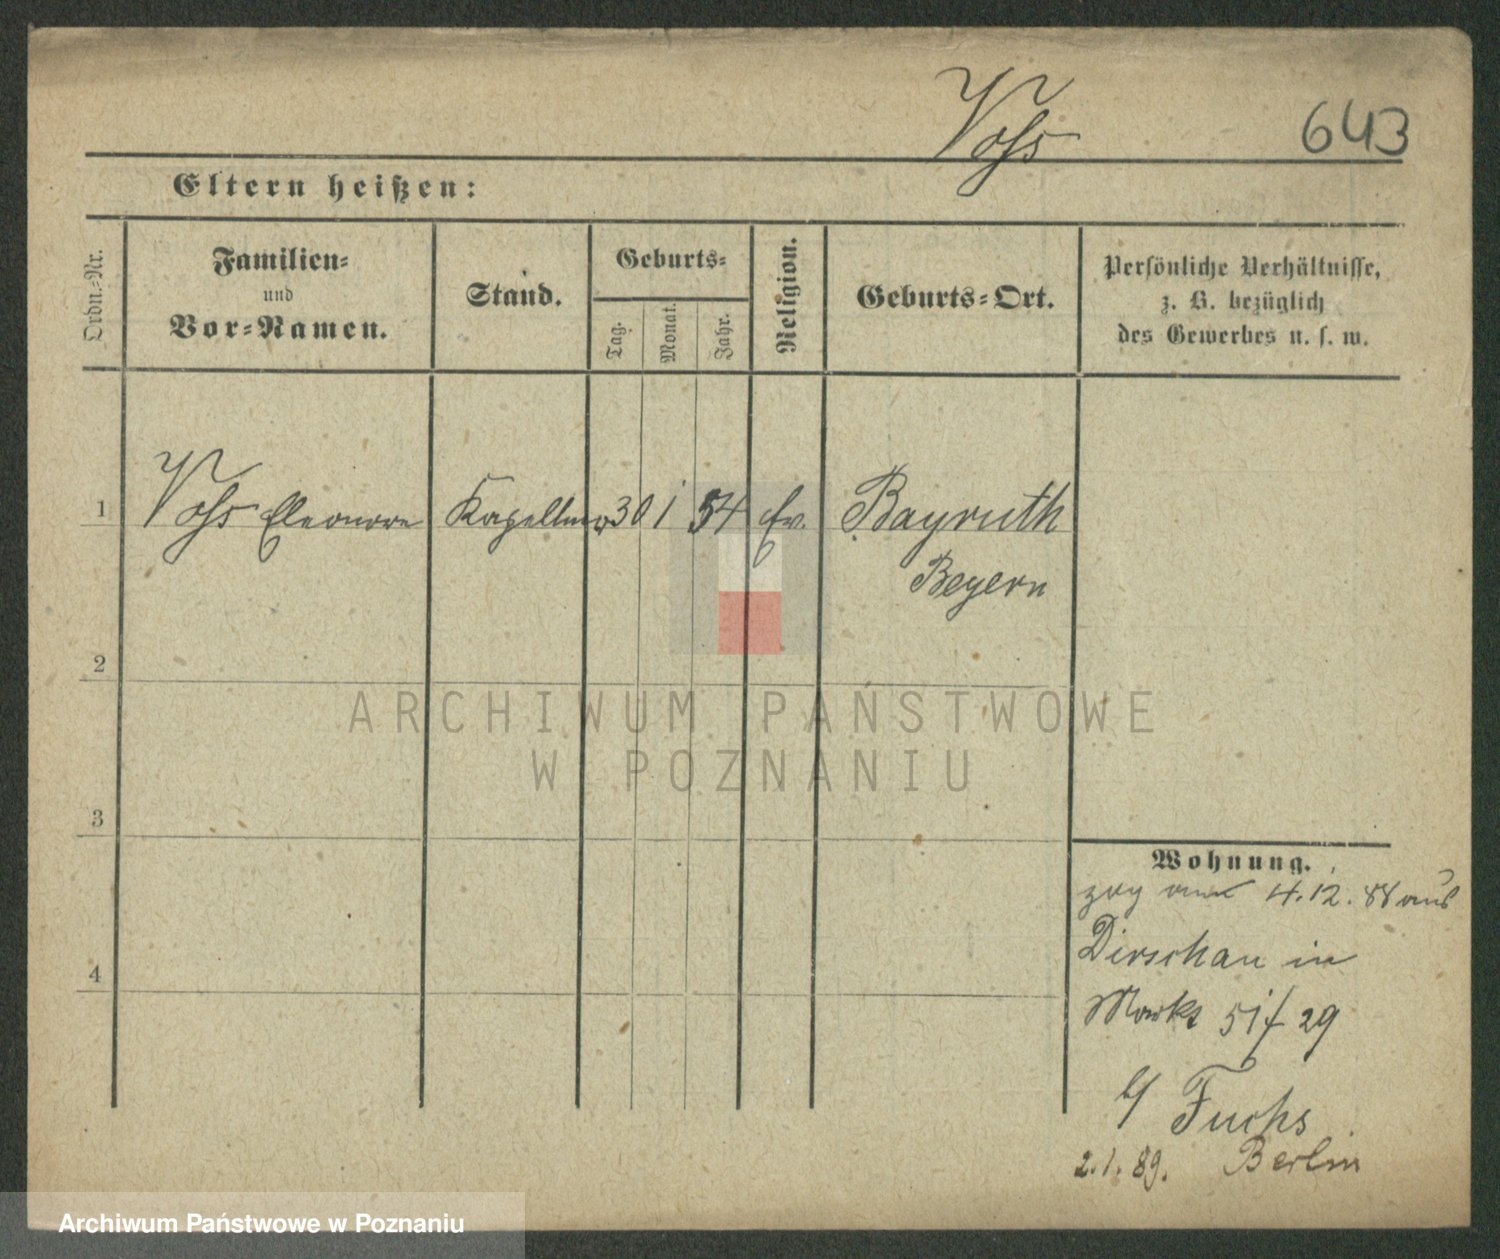 Voss
643
Eltern heißen:
Ordn.-Nr.
Familien-
und
Vor-Namen.
Stand.
Geburts-
Tag.
Monat.
Jahr.
Religion.
Geburts-Ort.
Persönliche Verhältnisse,
z. B. bezüglich
des Gewerbes u. s. w.
1 Voss Eleonore Kapellm 30 1 54 Ev. Bayruth
Beyern
2
3
4
Wohnung.
zog 4.12.88 aus
Dirschau in
Markt 51 / 29
b/ Fuchs
2.1.89. Berlin
ARCHIWUM PAŃSTWOWE
W POZNANIU
Archiwum Państwowe w Poznaniu